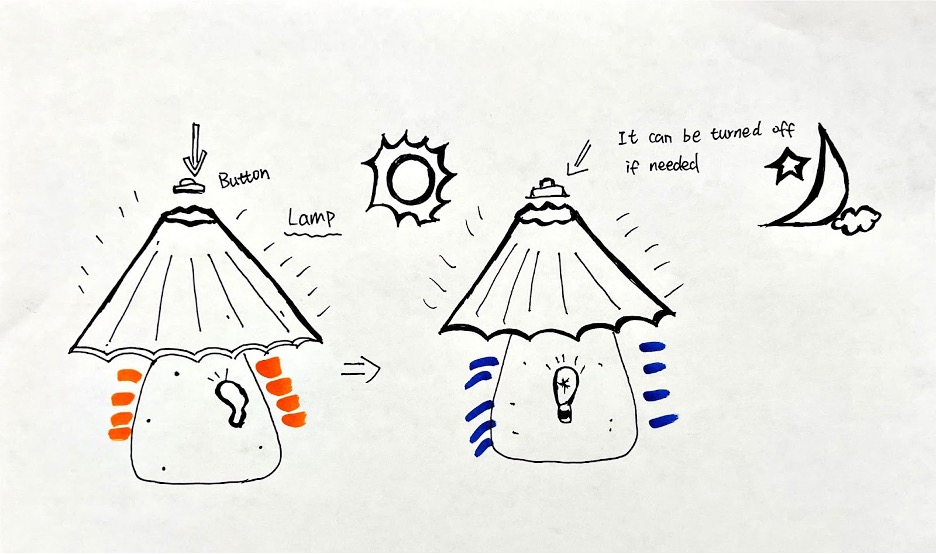 Button
Lamp
It can be turned off
if needed